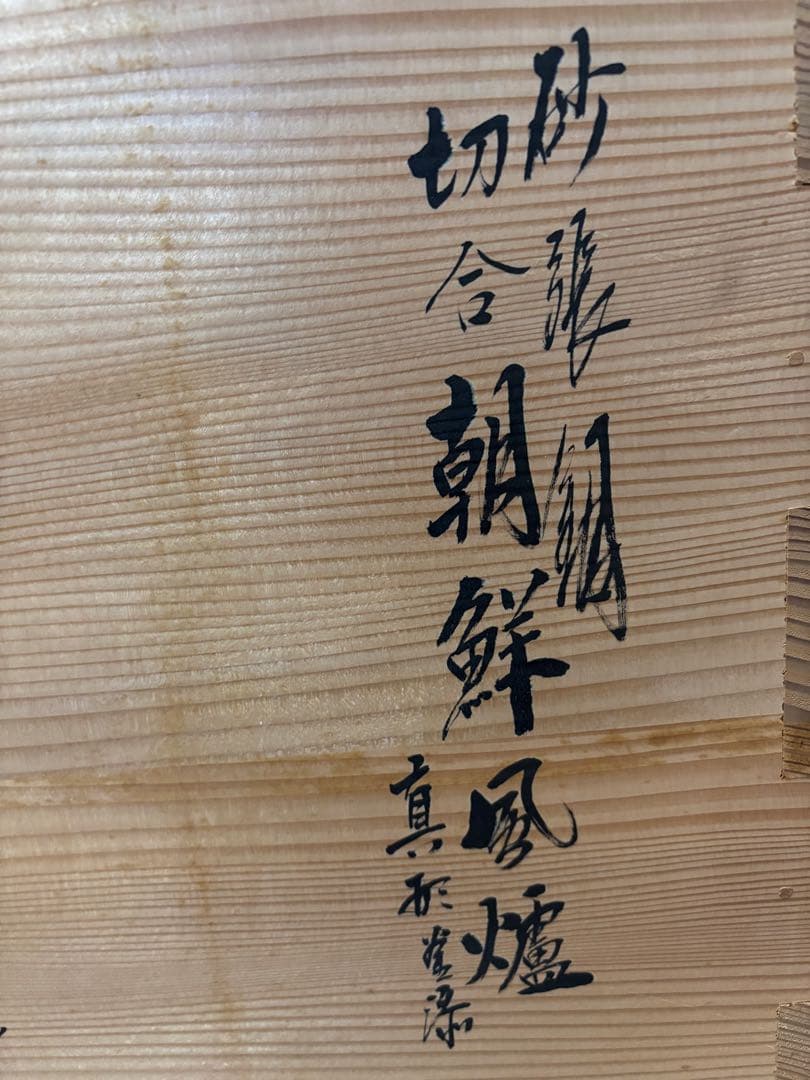 砂張
切合朝鮮風爐
真形釜添